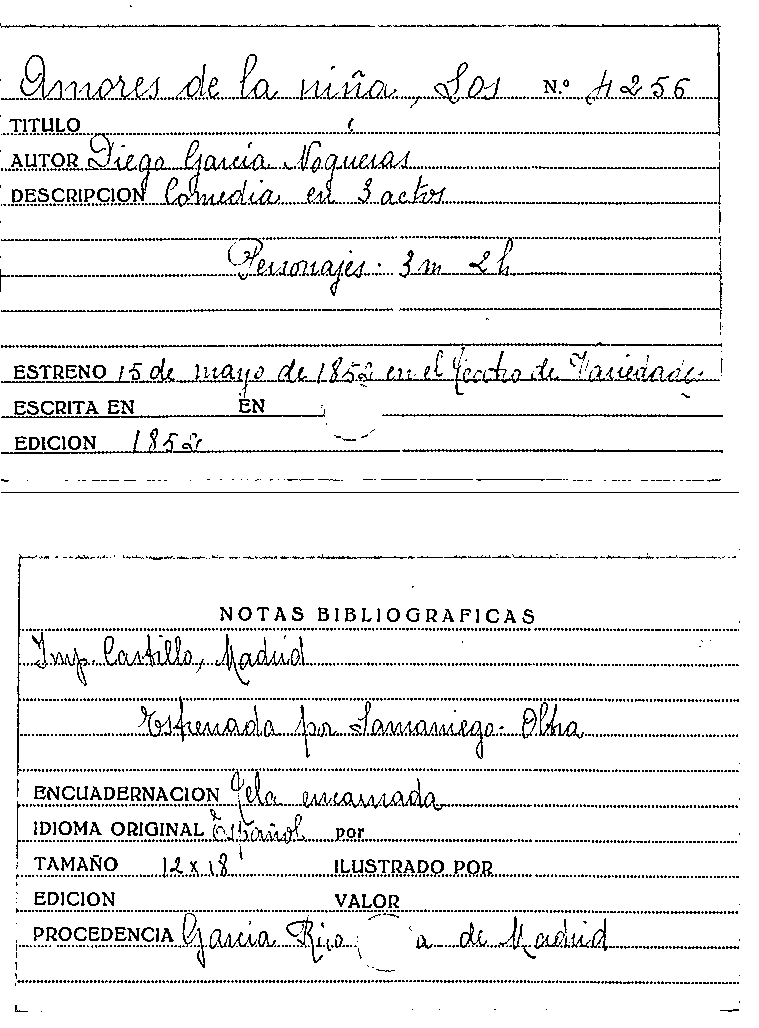 Amores de la niña, Los N.º 4256
TITULO
AUTOR Diego García Nogueras
DESCRIPCION Comedia en 3 actos
Personajes. 3 m 2 h
ESTRENO 15 de mayo de 1852 en el Teatro de Variedades
ESCRITA EN EN
EDICION 1852
NOTAS BIBLIOGRAFICAS
Imp. Castillo, Madrid
Estrenada por Samaniego- Olha
ENCUADERNACION Tela encarnada
IDIOMA ORIGINAL Español por
TAMAÑO 12 x 18 ILUSTRADO POR
EDICION VALOR
PROCEDENCIA García Rico a de Madrid